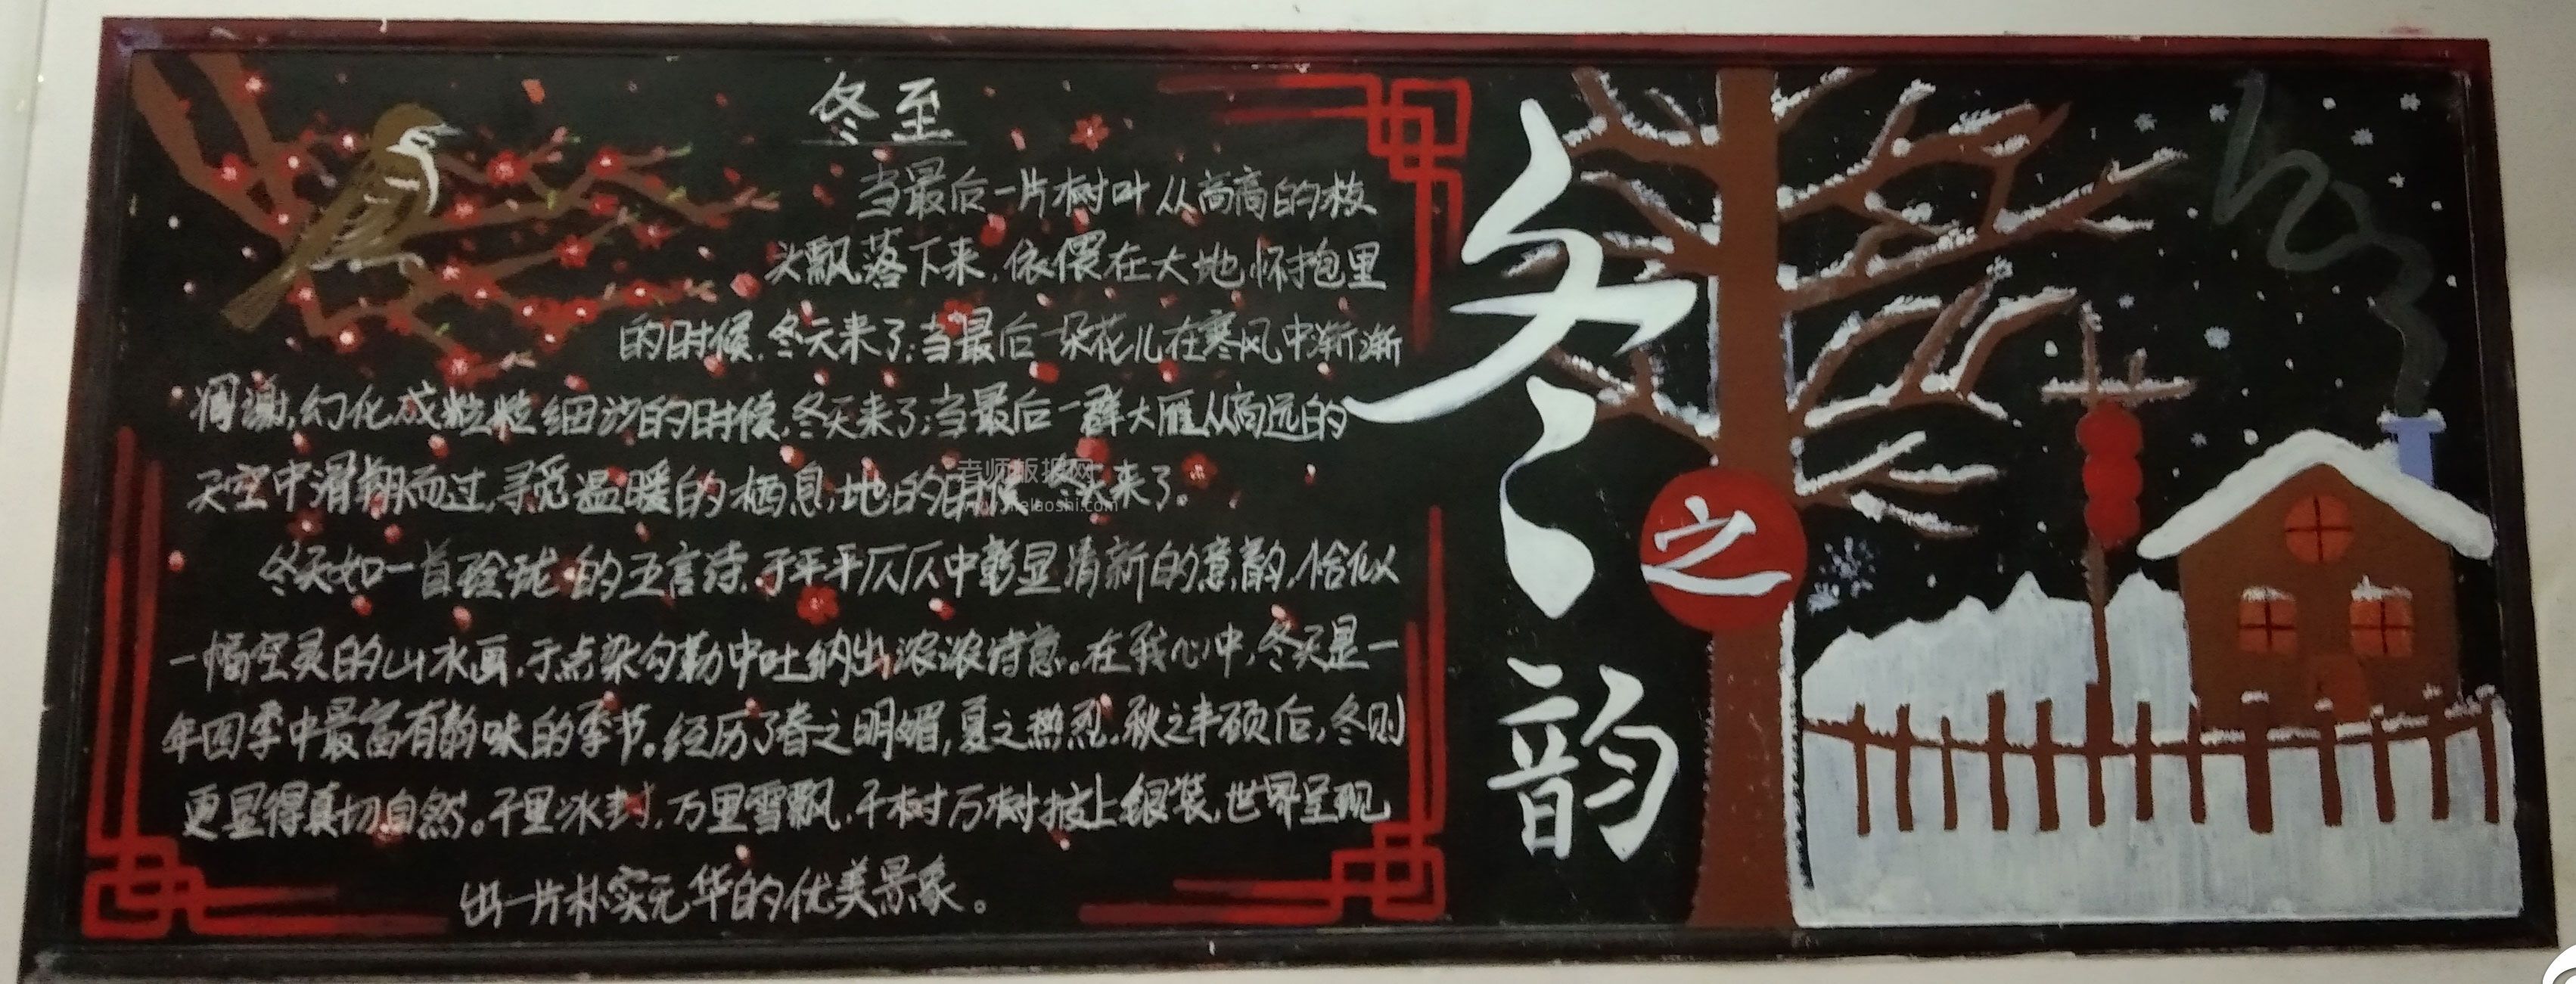 冬至
当最后一片树叶从高高的枝
头飘落下来,依偎在大地怀抱里
的时候,冬天来了;当最后一朵花儿在寒风中渐渐
凋谢,幻化成粒粒细沙的时候,冬天来了;当最后一群大雁从高远的
天空中滑翔而过,寻觅温暖的栖息地的时候,冬天来了。
冬天如一首玲珑的五言诗,于平平仄仄中彰显清新的意韵,恰似
一幅空灵的山水画,于点染勾勒中吐纳出浓浓诗意。在我心中,冬天是一
年四季中最富有韵味的季节。经历了春之明媚,夏之热烈,秋之丰硕后,冬则
更显得真切自然。千里冰封,万里雪飘,千树万树披上银装,世界呈现
出一片朴实无华的优美景象。
冬
之
韵
老师板报网